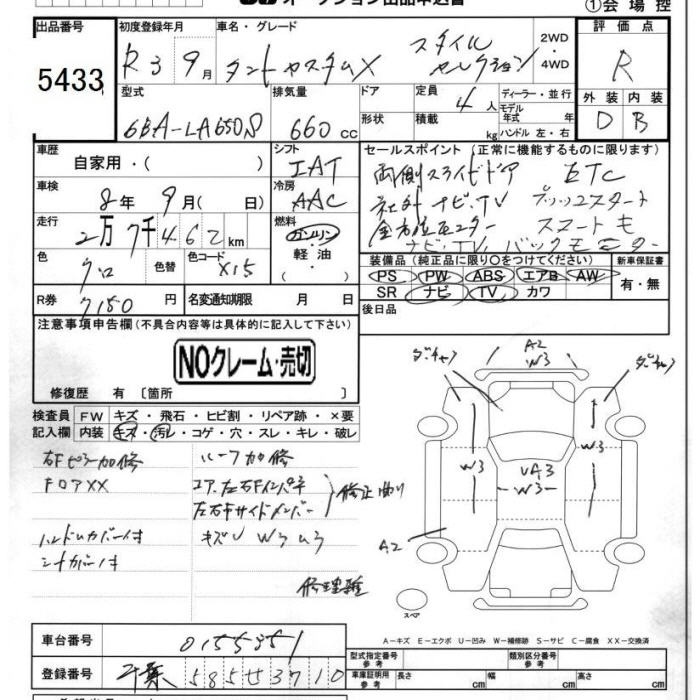 オークション出品申込書
①会場控
出品番号
5433
初度登録年月
R3 9月
車名・グレード
タントカスタムX スタイルセレクション
2WD・4WD
評価点
R
外装 内装
D B
型式
6BA-LA650S
排気量
660 cc
ドア
形状
定員
4人
積載
kg
ディーラー・並行
モデル年式 年式
ハンドル 左・右
車歴
自家用・( )
シフト
IAT
車検
8年 9月( 日)
冷房
AAC
走行
2万7千462km
燃料
ガソリン・軽油・( )
色
クロ
色替
色コード
X15
R券
7180円
名変通知期限 月 日
セールスポイント(正常に機能するものに限ります)
両側スライドドア ETC
社外ナビ.TV プッシュスタート
全方位モニター スマートキー
ナビ.TV バックモニター
装備品(純正品に限り○をつけてください)
PS PW ABS エアB AW
SR ナビ TV カワ
新車保証書
有・無
後日品
注意事項申告欄(不具合内容等は具体的に記入して下さい)
NOクレーム・売切
修復歴 有〔箇所 〕
検査員記入欄
FW キズ・飛石・ヒビ割・リペア跡・×要
内装 キズ・汚レ・コゲ・穴・スレ・キレ・破レ
右Fピラー加修
フロアXX
ハンドルカバー付
シートカバー付
ルーフ加修
コア.左右Fインパネ
左右Fサイドメンバー
修正 曲り
キズU W3 U3
修理歴
A2
W3
W3
W3
VA3
W3
A2
スペア
A-キズ E-エクボ U-凹み W-補修跡 S-サビ C-腐食 XX-交換済
車台番号
0155851
登録番号
千葉 585 せ 3710
型式指定番号 参考
類別区分番号 参考
車庫証明用 参考
長さ cm
幅 cm
高さ cm